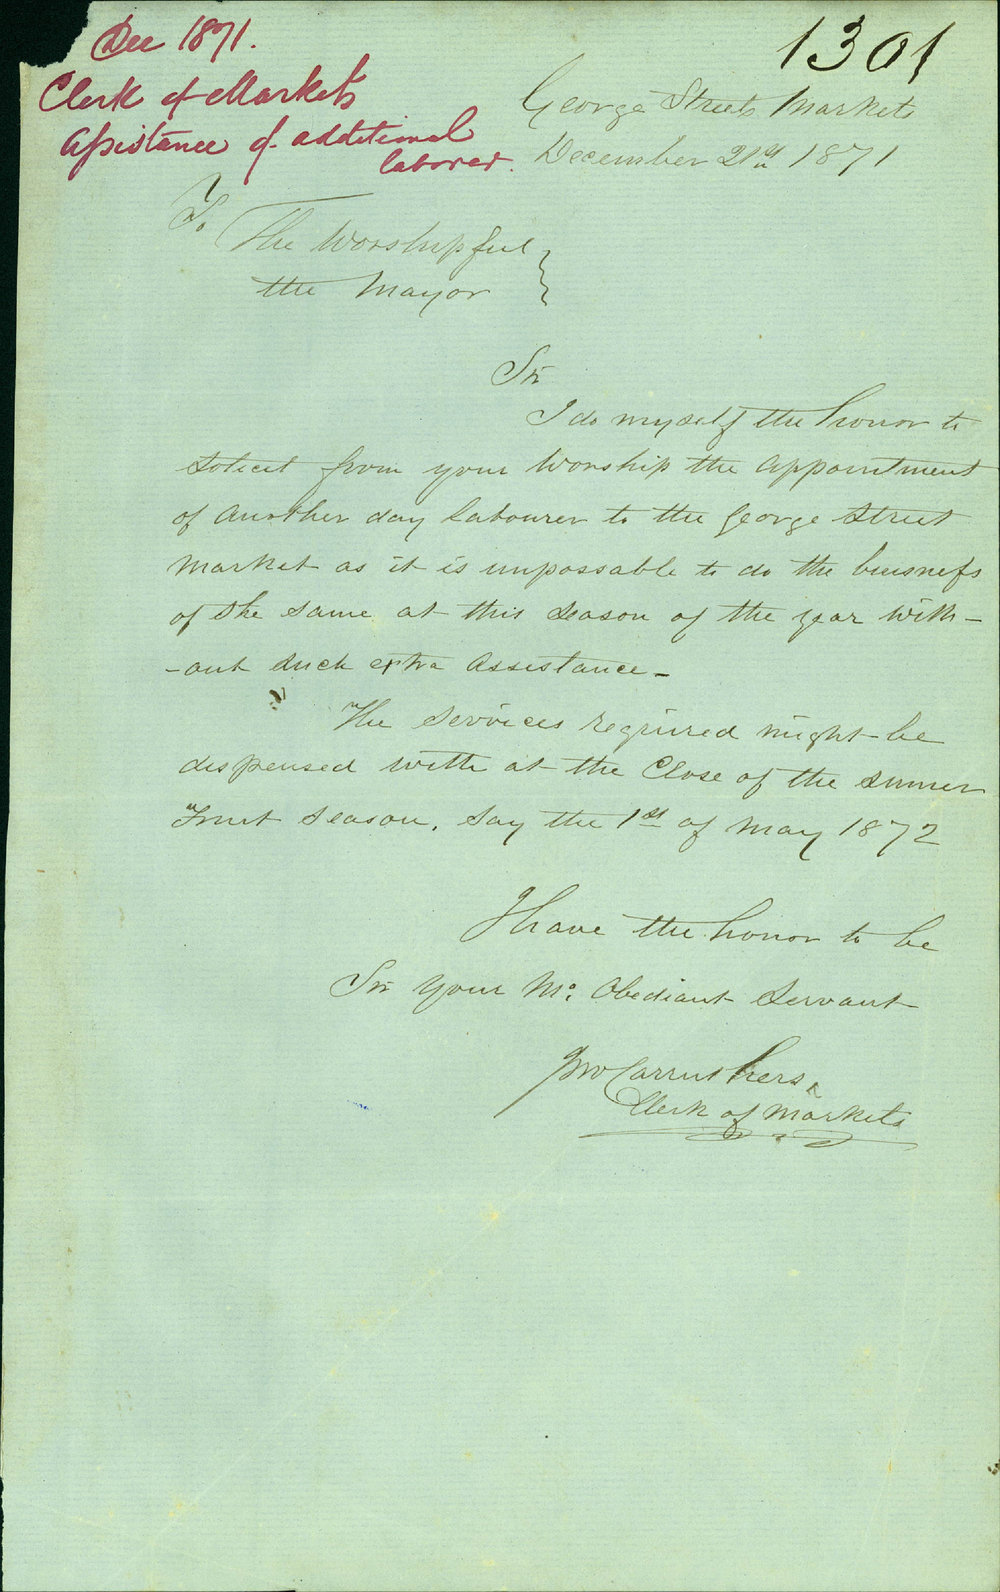 Dec 1871.
Clerk of Markets
Assistance of additional
laborer.
1301
George Streets Markets
December 21st 1871
To
The Worshipful
the Mayor
Sir
I do myself the honor to
solicit from your Worship the appointment
of another day labourer to the George Street
Market as it is unpossable to do the buisness
of the same at this season of the year with-
-out such extra assistance-
The services required might be
dispensed with at the Close of the summer
Fruit season, say the 1st of May 1872
I have the honor to be
Sir your Mo. Obediant Servant
Jno Carruthers
Clerk of Markets